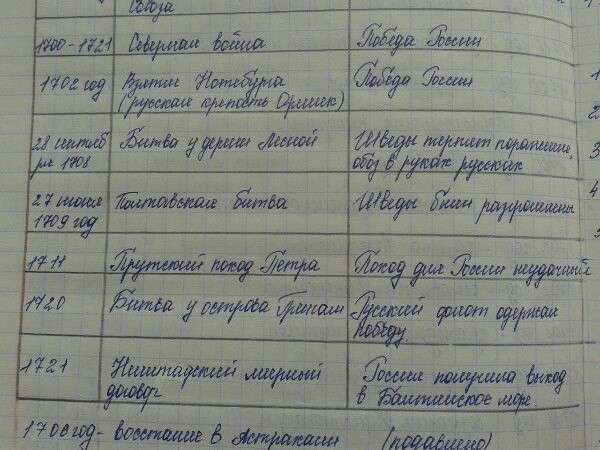 Союза
1700-1721 Северная война Победа России
1702 год Взятие Нотебурга Победа России
(русская крепость Орешек)
28 сентяб Битва у дерни Лесной Шведы терпит поражение,
ря 1708 обоз в руках русских
27 июня Полтавская битва Шведы были разгромлены
1709 год
1711 Прутский поход Петра Поход для России неудачный
1720 Битва у острова Гренгам Русский флот одержал
победу.
1721 Ништадский мирный Россия получила выход
договор в Балтийское море.
1706 год- восстание в Астрахани (подавлено)
1
2
3
4